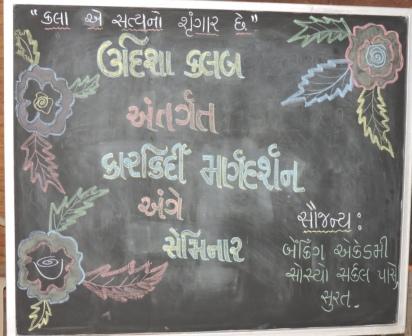 "કલા એ સત્યનો શૃંગાર છે"
ઉદિશા ક્લબ
અંતર્ગત
કારકિર્દી માર્ગદર્શન
અંગે
સેમિનાર
સૌજન્ય :
બેંકિંગ એકેડમી
સોસ્યો સર્કલ પાસે,
સુરત.